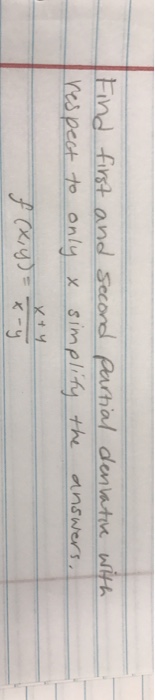 Find first and second partial derivative with
respect to only x simplify the answers.
f(x,y) = x+y / x-y